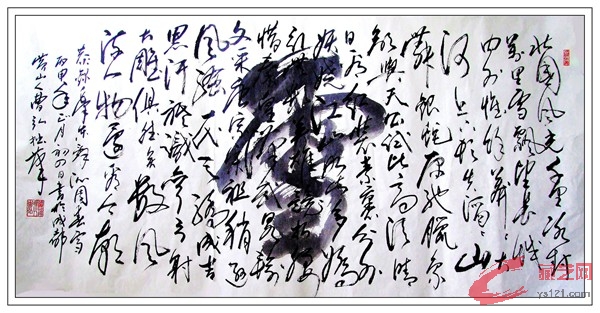 北国风光千里冰封
万里雪飘望长城
内外惟馀莽莽大
河上下顿失滔滔山
舞银蛇原驰腊象
欲与天公试比高须晴
日看红装素裹分外
妖娆江山如此多娇
引无数英雄竞折腰
惜秦皇汉武略输
文采唐宗宋祖稍逊
风骚一代天骄成吉
思汗祗识弯弓射
大雕俱往矣数风
流人物还看今朝
恭录毛泽东词沁园春雪
丙申年正月初四日书于成都
营山人曹弘
ys121.com